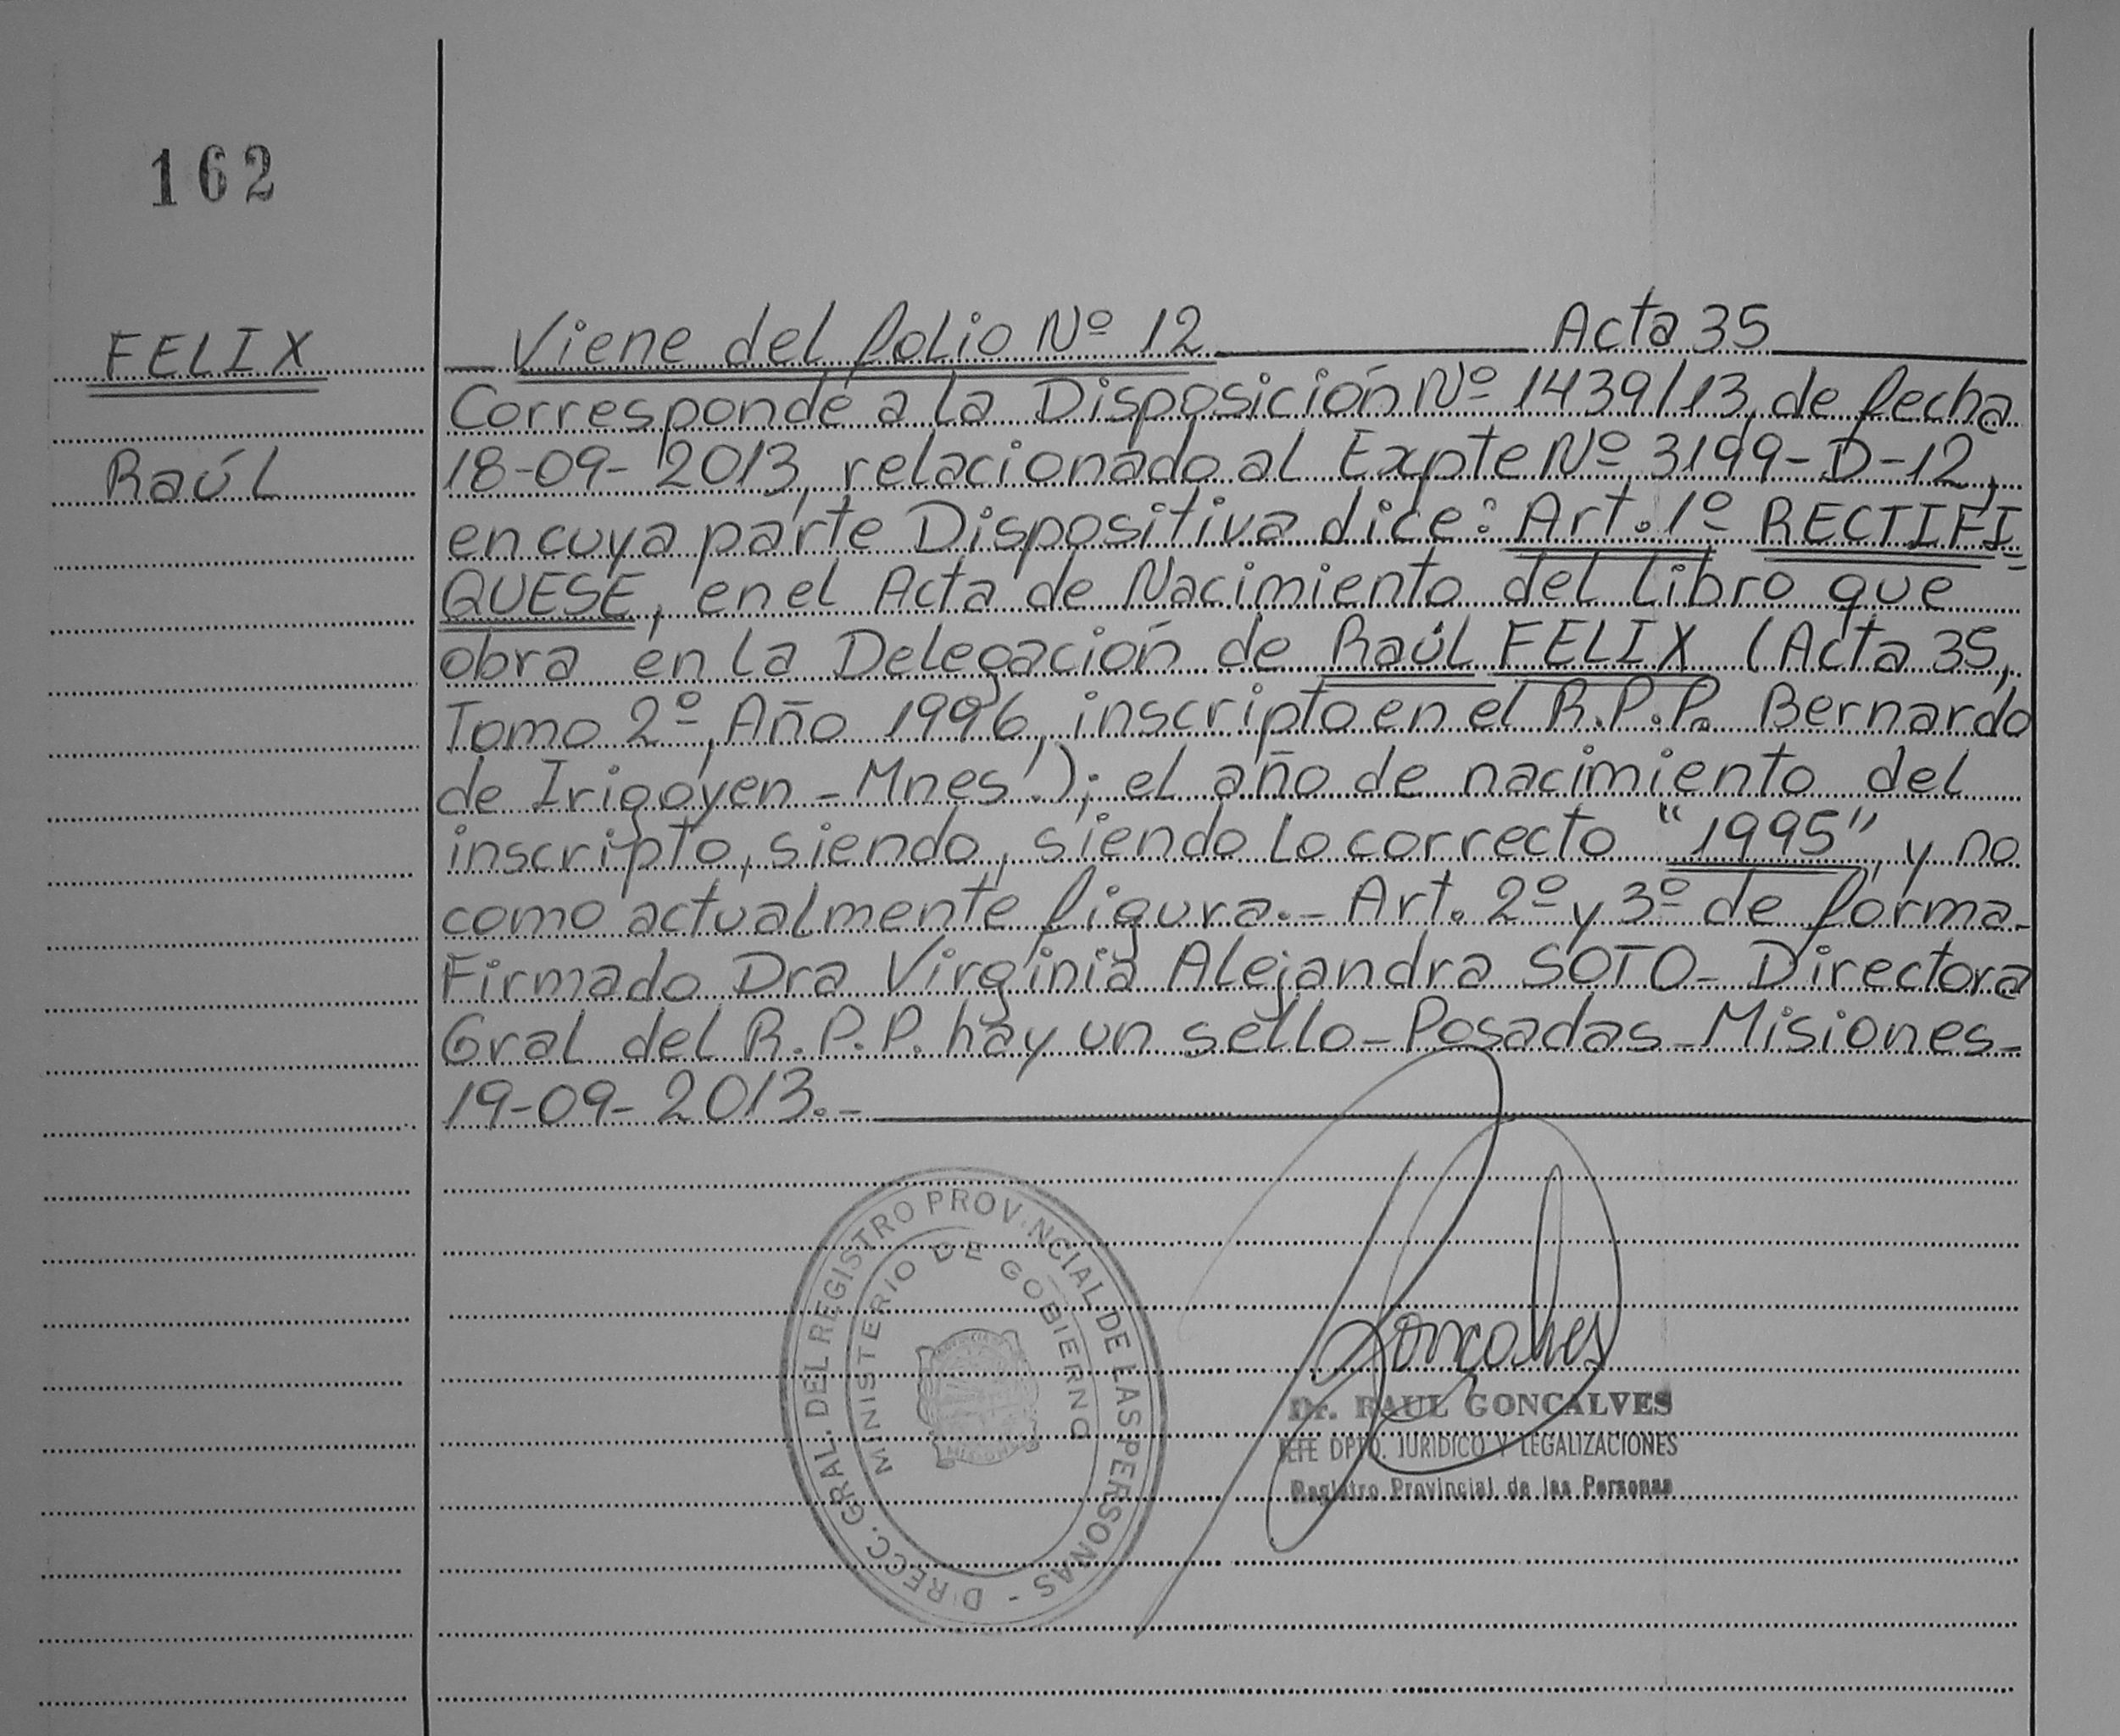 162
FELIX
Raúl
Viene del folio Nº 12 Acta 35
Corresponde a la Disposición Nº 1439/13, de fecha
18-09-2013, relacionado al Expte Nº 3199-D-12,
en cuya parte Dispositiva dice: Art. 1º RECTIFI-
QUESE, en el Acta de Nacimiento del Libro que
obra en la Delegación de Raúl FELIX (Acta 35,
Tomo 2º, Año 1996, inscripto en el R.P.P. Bernardo
de Irigoyen - Mnes.); el año de nacimiento del
inscripto, siendo, siendo lo correcto "1995", y no
como actualmente figura.- Art. 2º y 3º de forma-
Firmado Dra Virginia Alejandra SOTO- Directora
Gral del R.P.P. hay un sello- Posadas- Misiones-
19-09-2013.-
DIRECC. GRAL. DEL REGISTRO PROVINCIAL DE LAS PERSONAS -
MINISTERIO DE GOBIERNO
Gonçalves
Dr. RAUL GONCALVES
JEFE DPTO. JURIDICO Y LEGALIZACIONES
Registro Provincial de las Personas